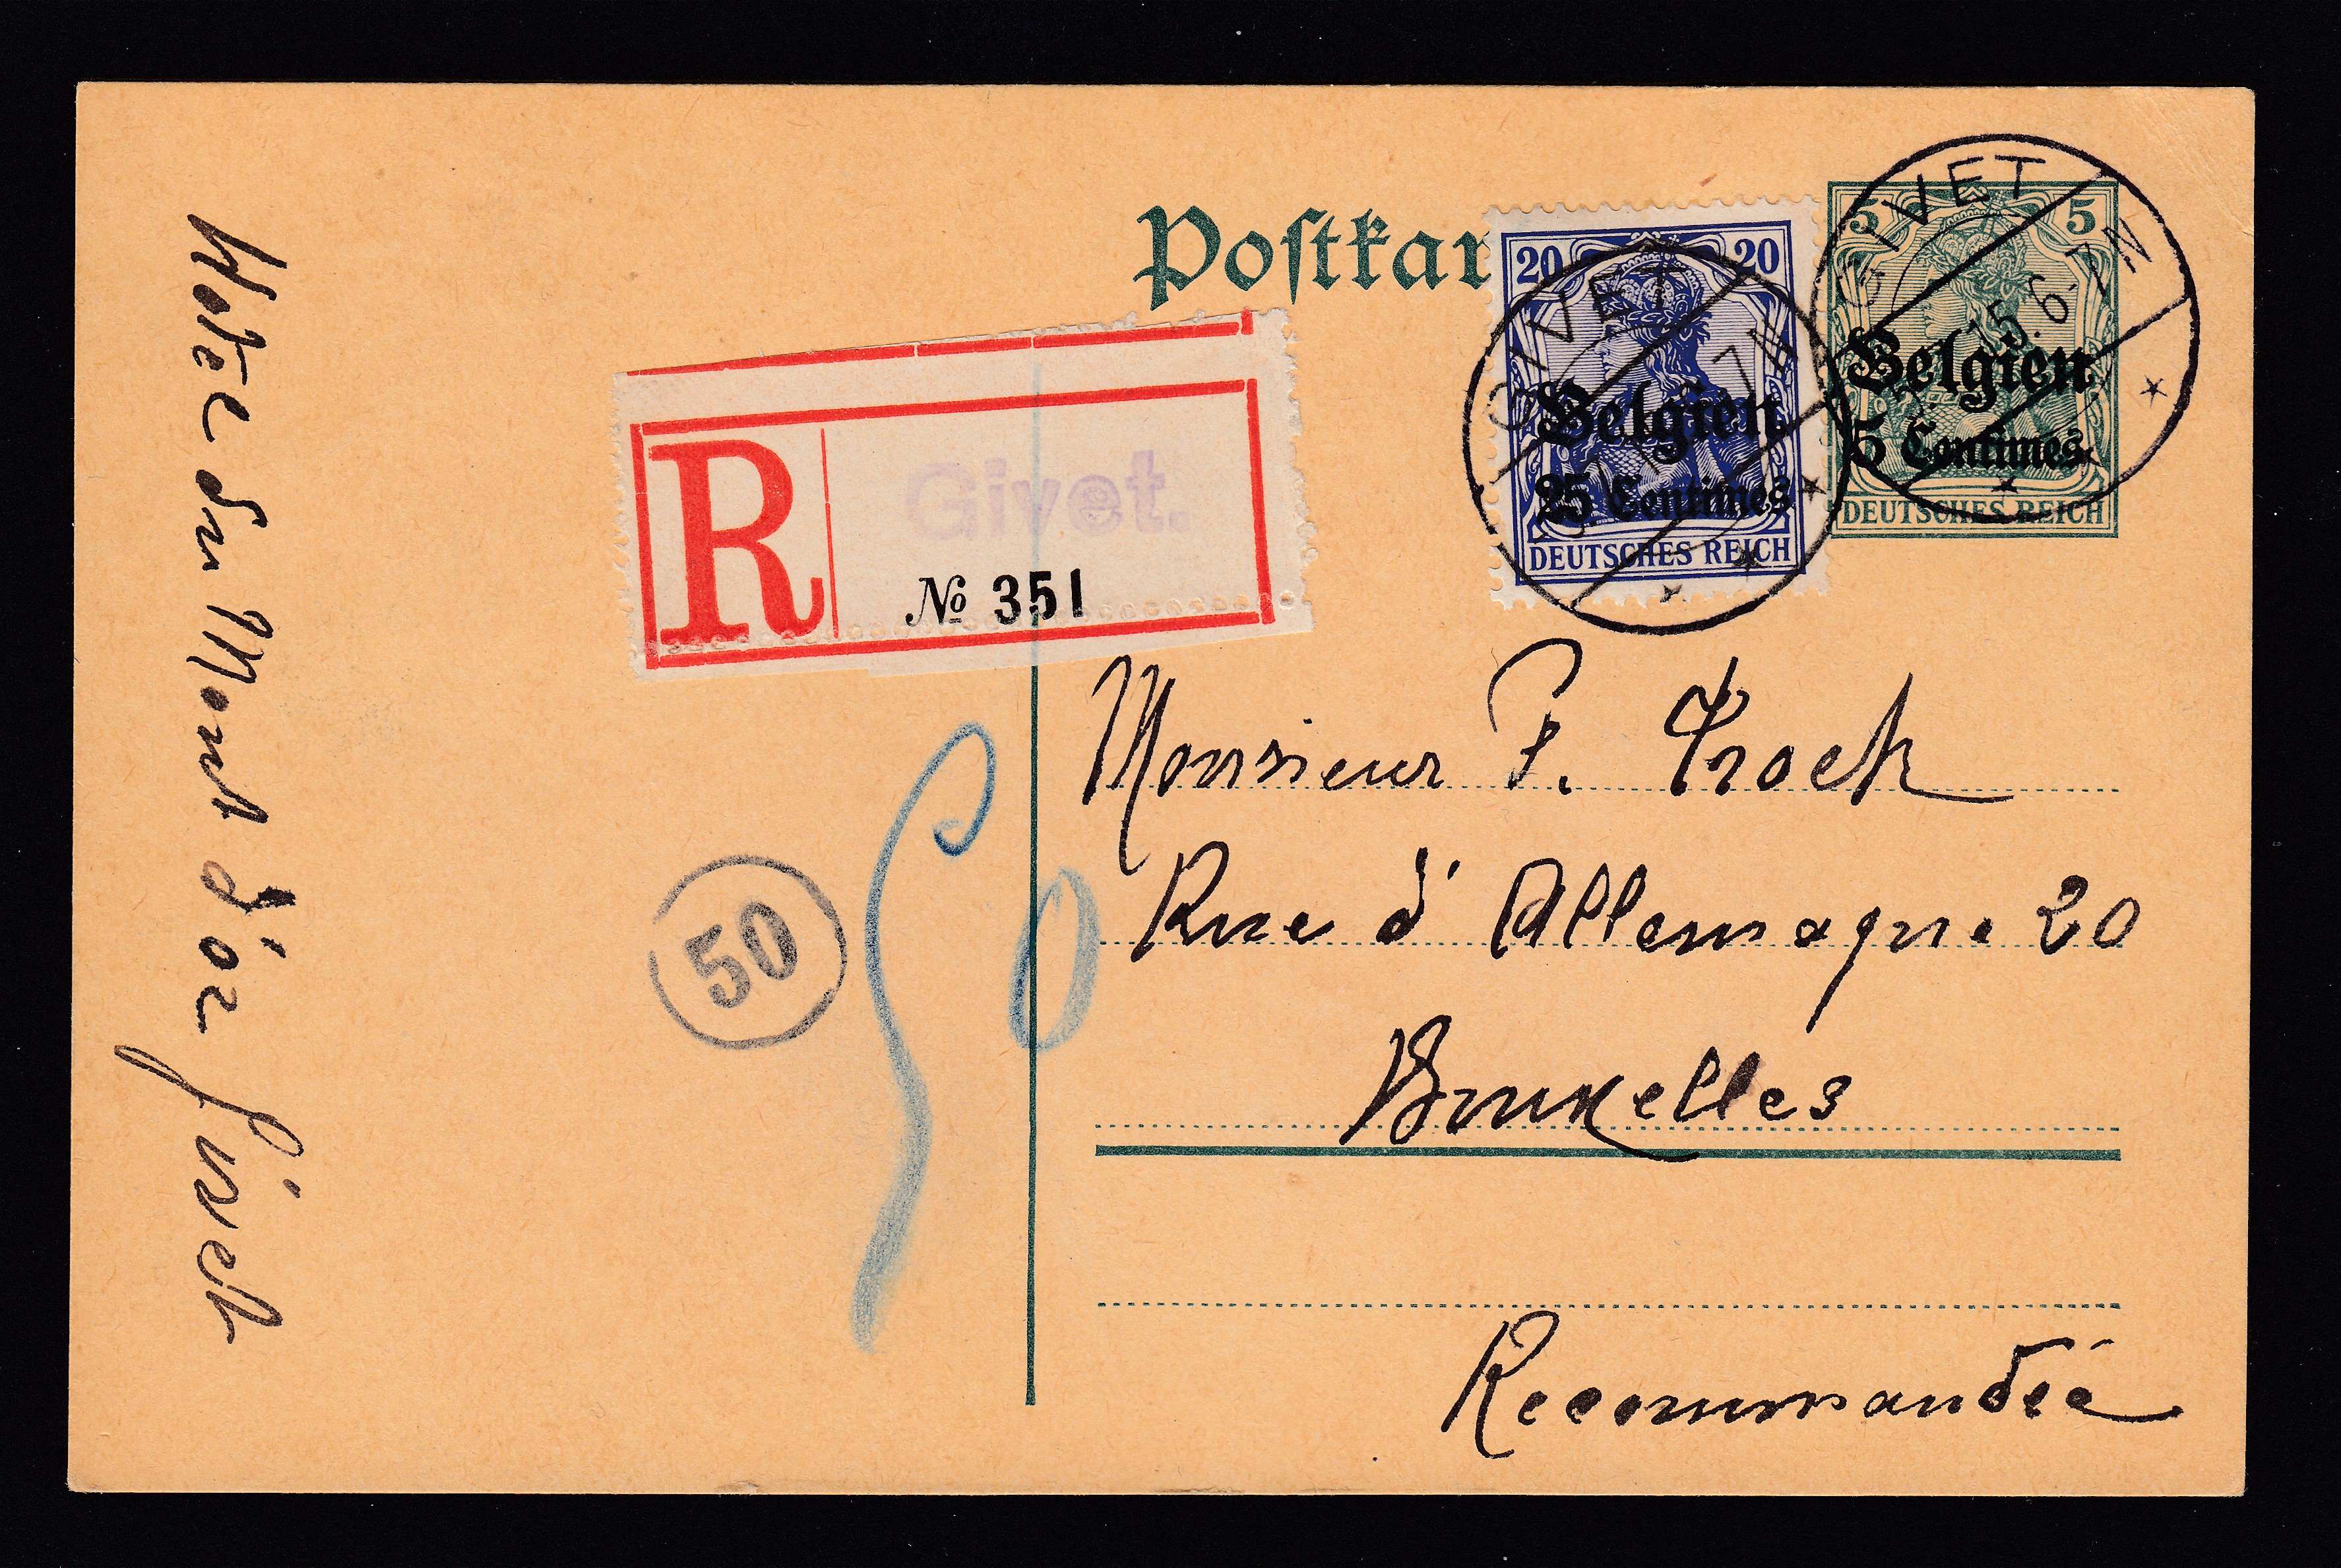 Postkar
20 20
Belgien
25 Centimes
DEUTSCHES REICH
GIVET
7N
5 5
Belgien
5 Centimes
DEUTSCHES REICH
GIVET
15.6-7N
R
Givet.
№ 351
Monsieur P. Trock
Rue d'Allemagne 20
Bruxelles
Recommandée
50
50
Hotel du Mont d'or Givet